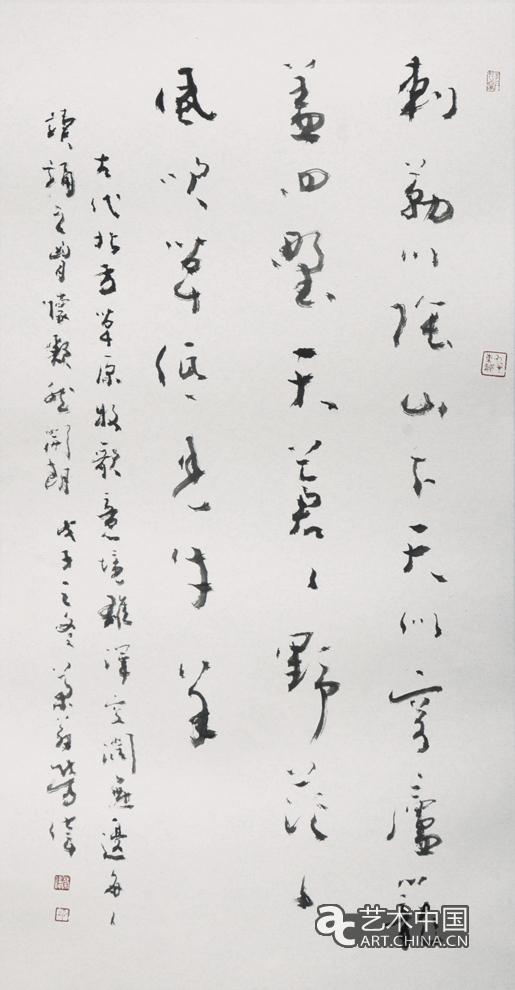 勅勒川陰山下天似穹廬籠
蓋四壄天蒼蒼野茫茫
風吹草低見牛羊
古代北方草原牧歌意境雄渾空闊無邊每每
讀誦之胸懷豁然開朗 戊子之冬
ac 艺术中国
ART.CHINA.CN